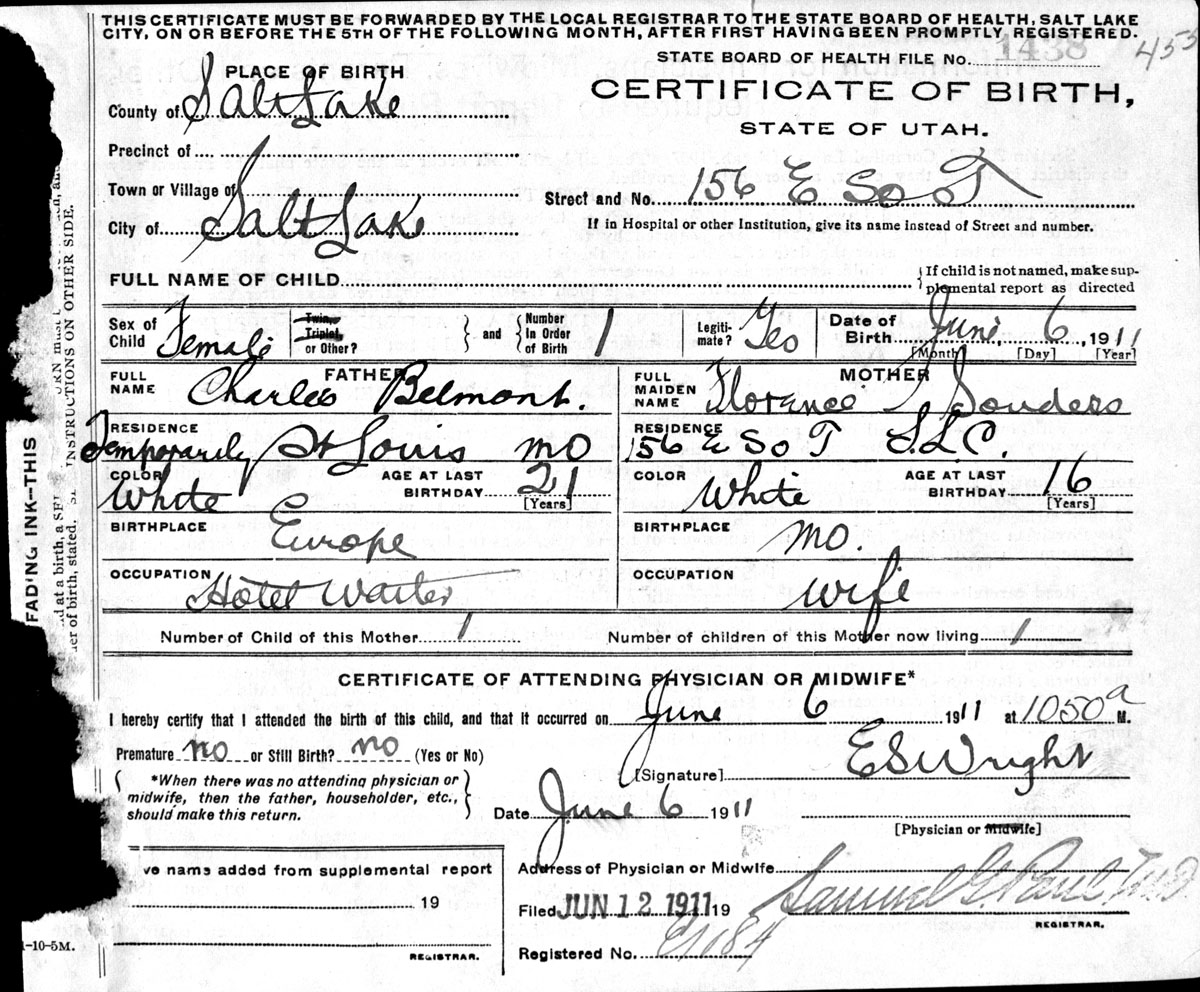 THIS CERTIFICATE MUST BE FORWARDED BY THE LOCAL REGISTRAR TO THE STATE BOARD OF HEALTH, SALT LAKE
CITY, ON OR BEFORE THE 5TH OF THE FOLLOWING MONTH, AFTER FIRST HAVING BEEN PROMPTLY REGISTERED.
STATE BOARD OF HEALTH FILE No. 1438 453
PLACE OF BIRTH
CERTIFICATE OF BIRTH,
County of Salt Lake
STATE OF UTAH.
Precinct of
Town or Village of
Street and No. 156 E So T
City of Salt Lake
If in Hospital or other Institution, give its name instead of Street and number.
FULL NAME OF CHILD
If child is not named, make sup-
plemental report as directed
Sex of Child Female
Twin, Triplet, or Other?
and
Number In Order of Birth 1
Legiti-mate? Yes
Date of Birth June 6, 1911
[Month] [Day] [Year]
FATHER
FULL NAME Charles Belmont.
MOTHER
FULL MAIDEN NAME Florence J Souders
RESIDENCE Temporarily St Louis Mo
RESIDENCE 156 E So T S.L.C.
COLOR White
AGE AT LAST BIRTHDAY 21
[Years]
COLOR White
AGE AT LAST BIRTHDAY 16
[Years]
BIRTHPLACE Europe
BIRTHPLACE Mo.
OCCUPATION Hotel Waiter
OCCUPATION Wife
Number of Child of this Mother 1
Number of children of this Mother now living 1
CERTIFICATE OF ATTENDING PHYSICIAN OR MIDWIFE*
I hereby certify that I attended the birth of this child, and that it occurred on June 6 1911 at 1050 a M.
Premature no or Still Birth? no (Yes or No)
[Signature] E S Wright
*When there was no attending physician or
midwife, then the father, householder, etc.,
should make this return.
Date June 6 1911
[Physician or Midwife]
ve name added from supplemental report
19
REGISTRAR.
1-10-5M.
Address of Physician or Midwife
Filed JUN 12 1911 19
Samuel G. Paul M.D.
REGISTRAR.
Registered No.
FADING INK—THIS
INSTRUCTIONS ON OTHER SIDE.
at a birth, a
er of birth, stated.